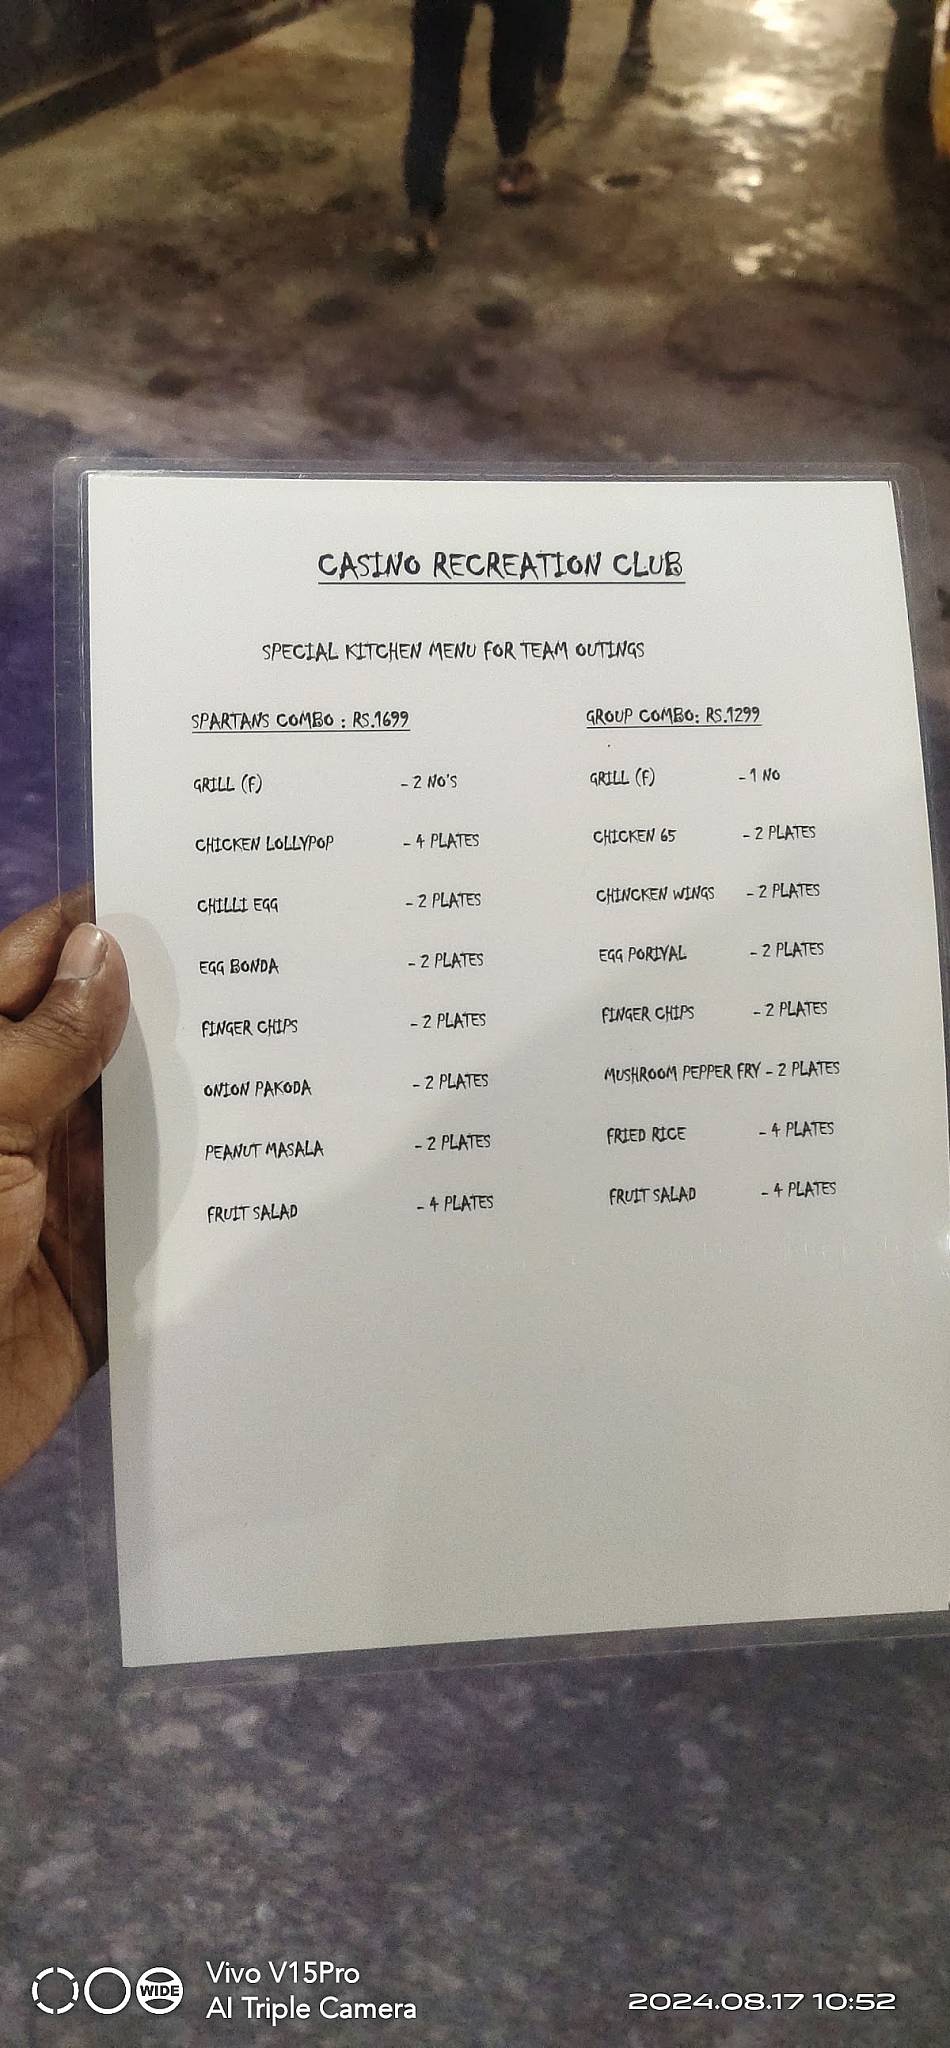 CASINO RECREATION CLUB
SPECIAL KITCHEN MENU FOR TEAM OUTINGS
SPARTANS COMBO : RS.1699
GRILL (F) - 2 NO'S
CHICKEN LOLLYPOP - 4 PLATES
CHILLI EGG - 2 PLATES
EGG BONDA - 2 PLATES
FINGER CHIPS - 2 PLATES
ONION PAKODA - 2 PLATES
PEANUT MASALA - 2 PLATES
FRUIT SALAD - 4 PLATES
GROUP COMBO: RS.1299
GRILL (F) - 1 NO
CHICKEN 65 - 2 PLATES
CHINCKEN WINGS - 2 PLATES
EGG PORIYAL - 2 PLATES
FINGER CHIPS - 2 PLATES
MUSHROOM PEPPER FRY - 2 PLATES
FRIED RICE - 4 PLATES
FRUIT SALAD - 4 PLATES
WIDE
Vivo V15Pro
AI Triple Camera
2024.08.17 10:52